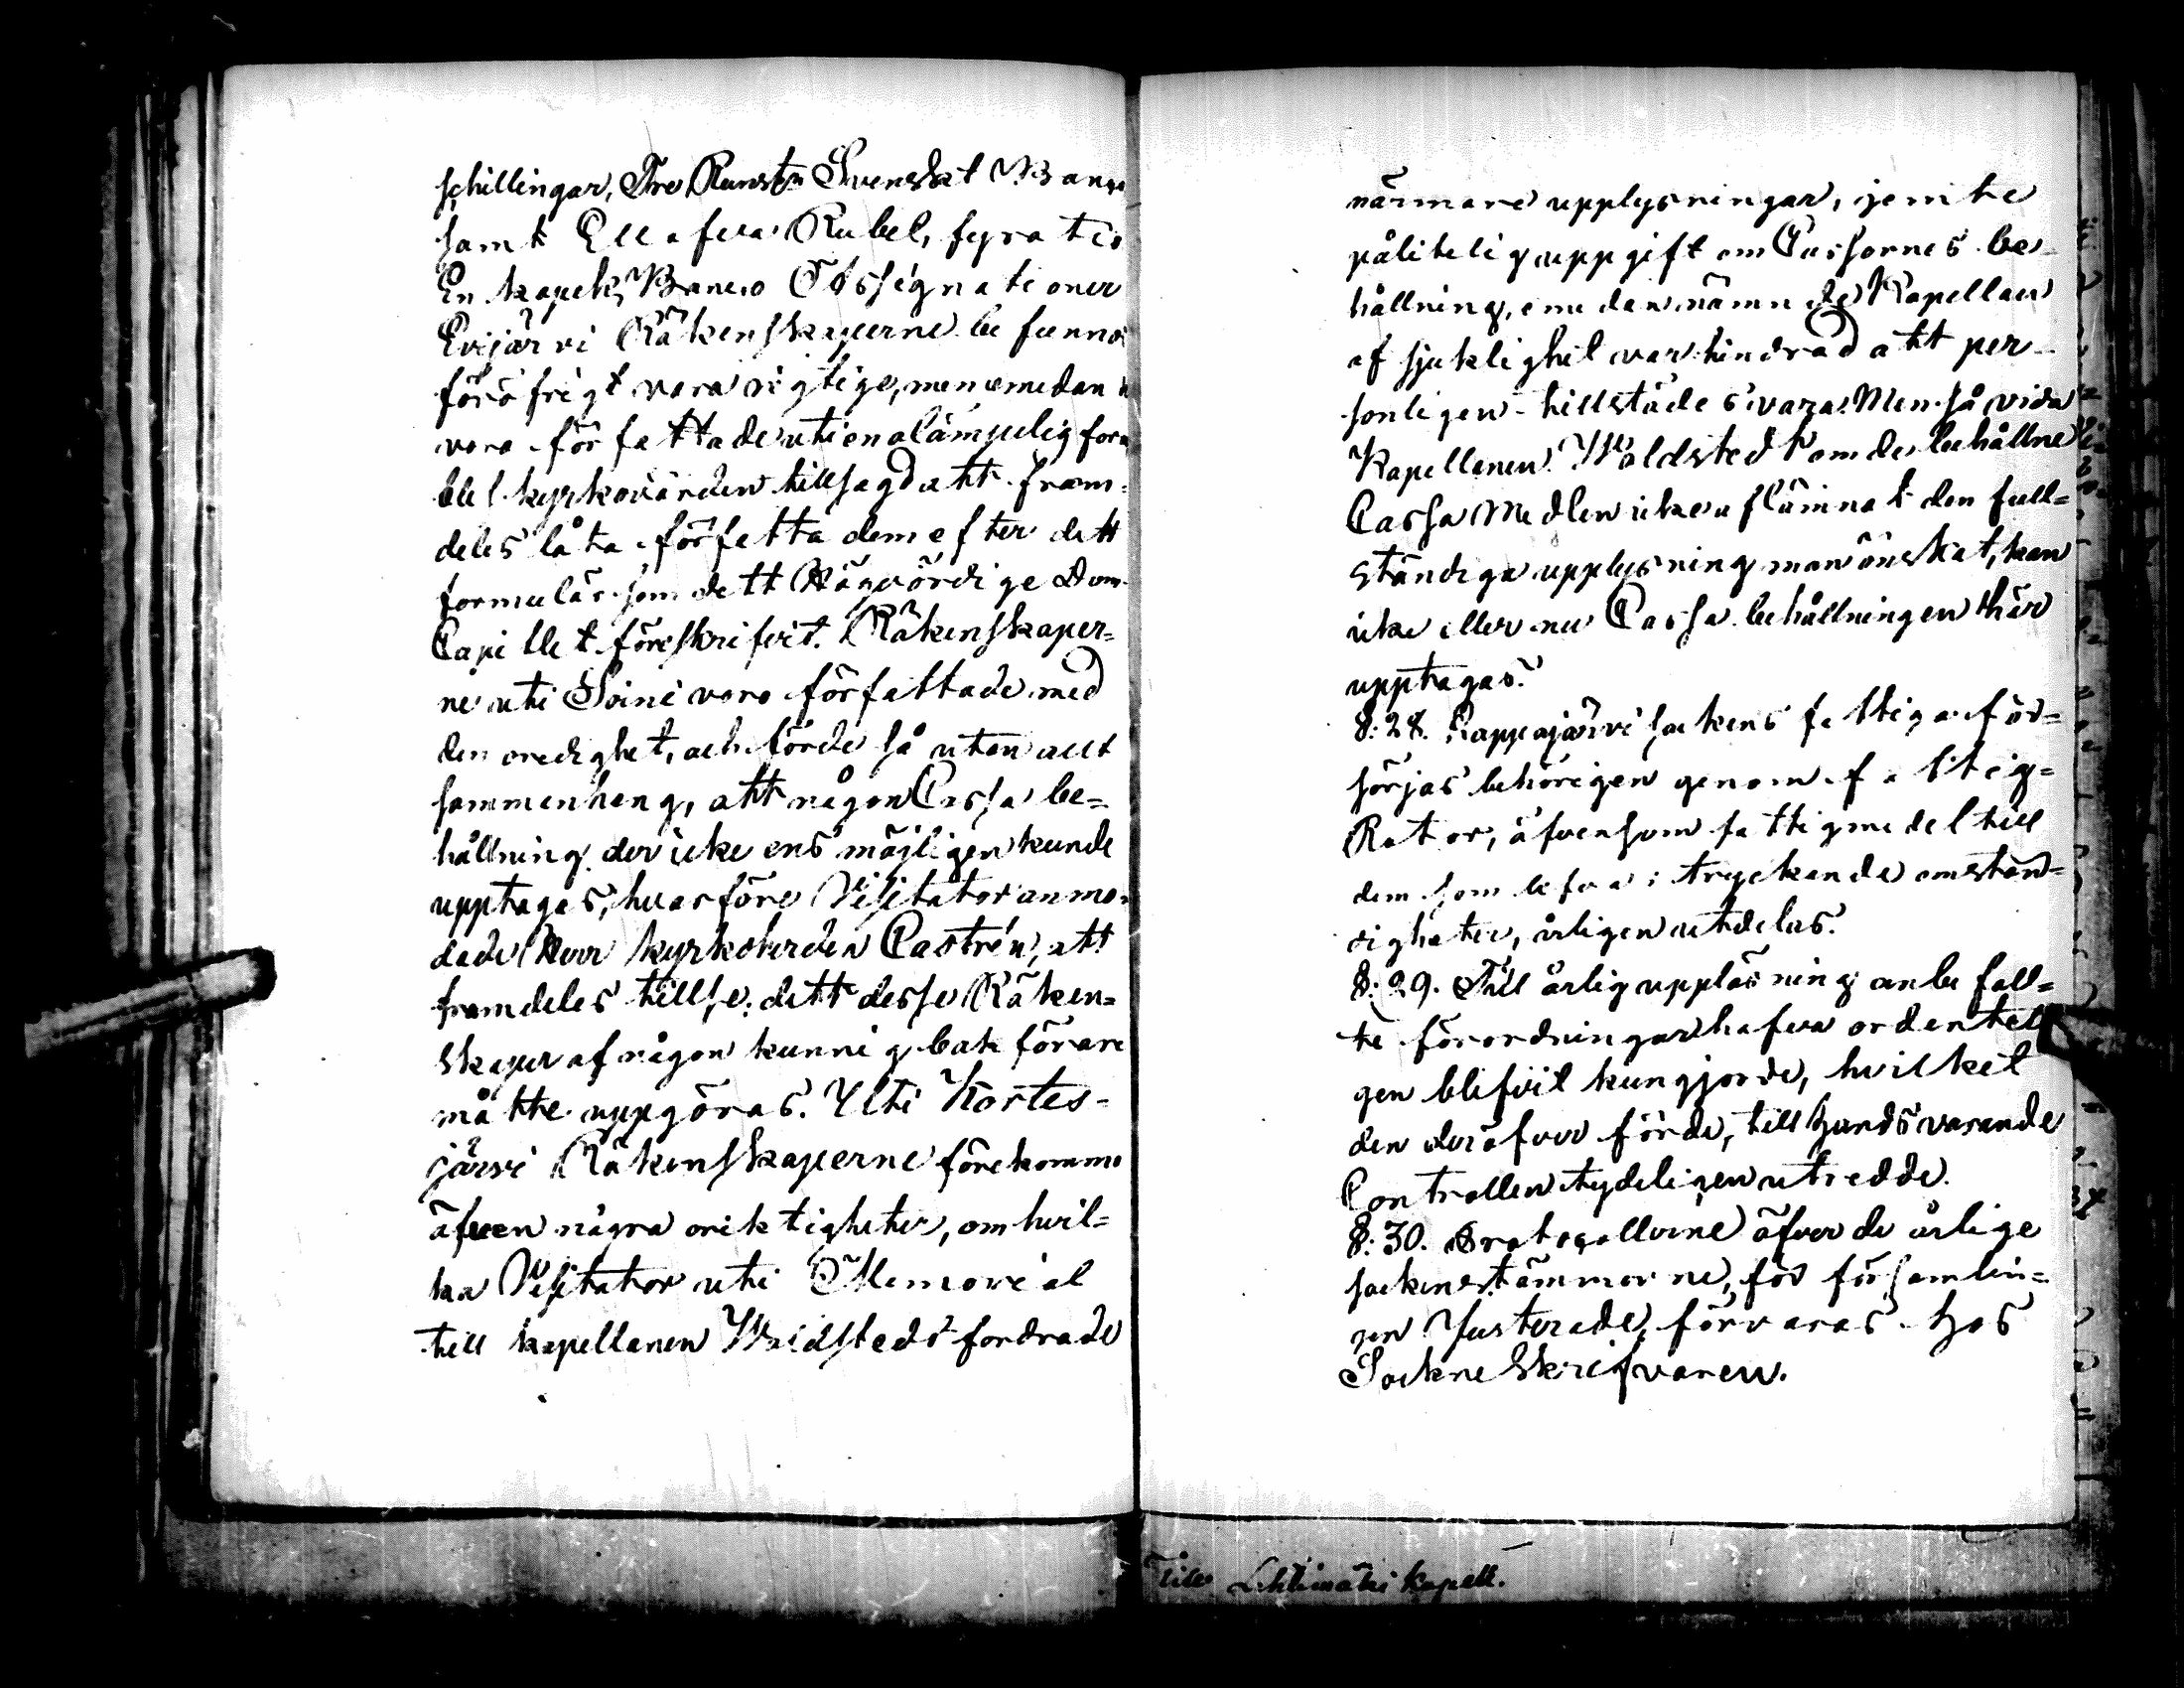 schillingar, Tre Runst: Svenskt Banco
samt Ellafva Rubel, fyratio
En kopek Banco Assignationer
Evijärvi Räkenskaperne befunnos
föröfrigt vara rigtige, men emedan de
voro författade uti en olämpelig form
blef kyrkovärden tillsagd att fram-
deles låta författa dem efter dett
formulär som dett Högvördige Dom-
Capitlet föreskrifvit. Räkenskaper-
ne uti Soini voro författade med
den oredighet, och förde så utan allt
sammenhang, att någon Cassa be=
hållning der icke ens möjligen kunde
upptagas, hvarföre Visitator anmo-
dade Herr kyrkoherden Castrén, att
framdeles tillse, dett desse Räken=
skaper af någon kunnig bokförare
måtte uppgöras. Uti Kortes-
järvi Räkenskaperne förekommo
äfven några oriktigheter, om hvil=
ka Visitator uti Memorial
till kapellanen Waldstedt fordrade
närmare upplysningar, jemte
pålitelig uppgift om Cassornes be-
hållning, emedan nämnde Kapellan
af sjuklighet var hindrad att per-
sonligen tillstädes vara. Men så vida
Kapellanen Waldstedt om de behållne
Cassa Medlen icke aflämnat den full=
ständiga upplysning man önskat, kan
icke eller nu Cassa behållningen här
upptagas.
§: 28. Lappajärvi sockens fattiga för=
sörjas behörigen genom fattig=
Rotor, äfvensom fattigmedel till
dem som lefva i tryckande omstän=
digheter, årligen utdelas.
§: 29. Till årlig uppläsning anbefall=
te förordningar hafva ordenteli
gen blifvit kungjorde, hvilket
den deröfver förde, till hands varande
Controllen tydeligen utredde.
§: 30. Protocollerne öfver de årlige
sockenstämmorne, för församlin=
gen Justerade, förvaras hos
Sockneskrifvaren.
Till Lehtimäki kapell.